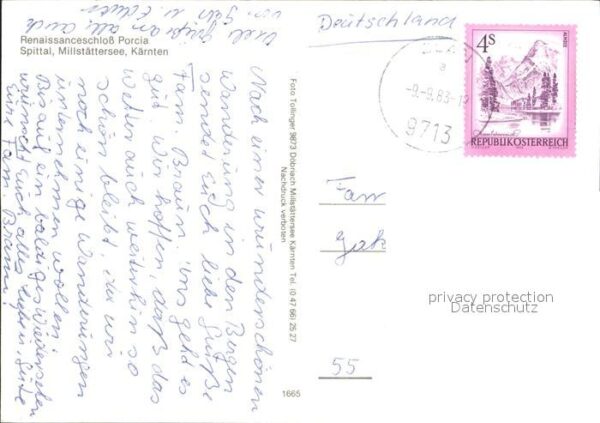 Renaissanceschloß Porcia
Spittal, Millstättersee, Kärnten
Nach einer wunderschönen
Wanderung in den Bergen
sendet Euch liebe Grüße
Fam. Braun. Uns geht es
gut. Wir hoffen, daß das
Wetter auch weiterhin so
schön bleibt, da wir
noch einige Wanderungen
unternehmen wollen.
Bis auf ein baldiges Wiedersehen
wünscht Euch alles Liebe u. Gute
Eure Fam. Braun
Viele Grüße an alle auch
von u.
Foto Tollinger 9873 Döbriach Millstättersee Kärnten Tel. (0 47 66) 25 27
Nachdruck verboten
1665
Deutschland
a
-9.-9.83-1
9713
4S
ALMSEE
REPUBLIK ÖSTERREICH
Fam
55
privacy protection
Datenschutz